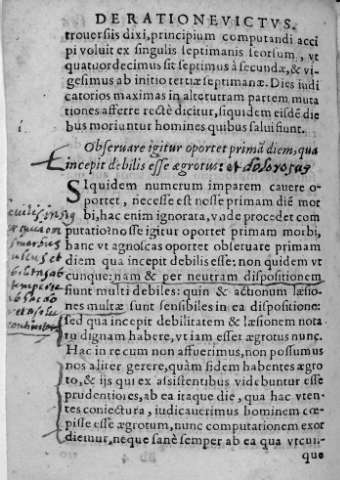 DE RATIONE VICTVS.
trouersiis dixi, principium computandi acci
pi voluit ex singulis septimanis seorsum, vt
quatuordecimus sit septimus à secunda, & vi-
gesimus ab initio tertiæ septimanæ. Dies iudi
catorios maximas in alterutram partem muta
tiones afferre rectè dicitur, siquidem eisdē die
bus moriuntur homines quibus salui fiunt.
Obseruare igitur oportet primā diem, qua
incepit debilis esse ægrotus: et dolorosus
SIquidem numerum imparem cauere o-
portet, necesse est nosse primam diē mor
bi, hac enim ignorata, vnde procedet com
putatio? nosse igitur oportet primam morbi,
hanc vt agnoscas oportet obseruare primam
diem qua incepit debilis esse: non quidem vt
cunque: nam & per neutram dispositionem
fiunt multi debiles: quin & actionum læsio-
nes multæ sunt sensibiles in ea dispositione:
sed qua incepit debilitatem & læsionem nota
tu dignam habere, vt iam esset ægrotus nunc.
Hac in re cum non affuerimus, non possumus
nos aliter gerere, quàm fidem habentes ægro
to, & ijs qui ex assistentibus videbuntur esse
prudentiores, ab ea itaque die, qua hac vten-
tes coniectura, iudicauerimus hominem cœ-
pisse esse ægrotum, nunc computationem exor
diemur, neque sanè semper ab ea qua vtcun-
que
1.